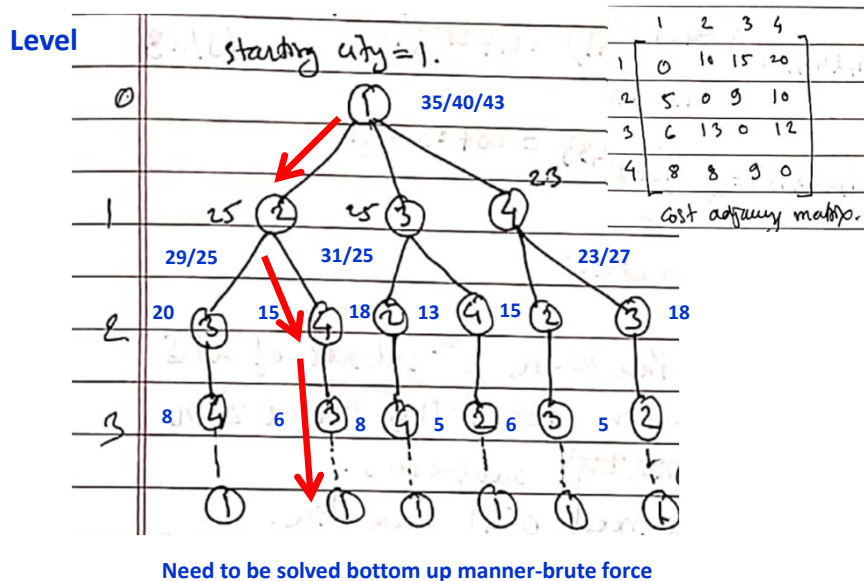 Level
starting city = 1.
1 2 3 4
1 0 10 15 20
2 5 0 9 10
3 6 13 0 12
4 8 8 9 0
cost adjancy matrix.
0 1 35/40/43
1 25 2 25 3 4 23
29/25 31/25 23/27
2 20 3 15 4 18 2 13 4 15 2 3 18
3 8 4 6 3 8 4 5 2 6 3 5 2
1 1 1 1 1 1
Need to be solved bottom up manner-brute force